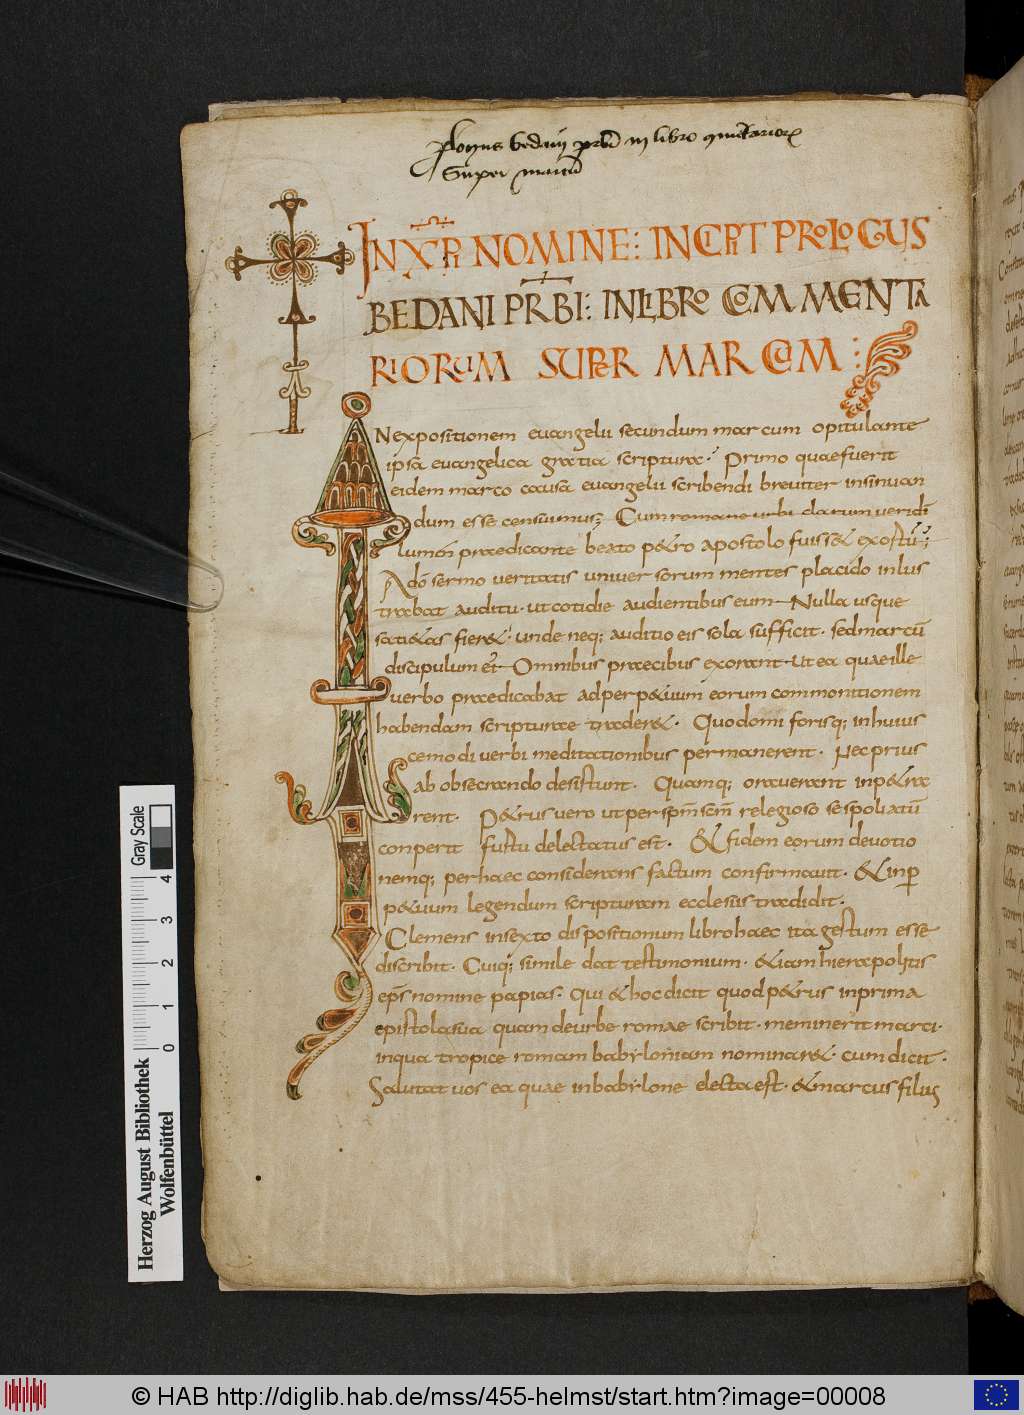 prologus bedani prbi in libro
super marcu
IN XPI NOMINE: INCIPIT PROLOGUS
BEDANI PRBI: IN LIBRO COMMENTA
RIORUM SUPER MARCUM:
IN expositionem euangelii secundum marcum opitulante
ipsa euangelica gratia scripturae. Primo quae fuerit
eidem marco causa euangelii scribendi breviter insinuan
dum esse censuimus; Cum romane urbi clarum veridi
lumen praedicante beato petro apostolo fuisset
Adeo sermo veritatis universorum mentes placido inlus
trabat auditu. ut cotidie audientibus eum Nulla usque
satietas fieret. unde neq; auditio eis sola sufficit. sed marcu
discipulum ei. Omnibus praecibus exorant. ut ea quae ille
verbo praedicabat ad perpetuum eorum commonitionem
habendam scripturae traderet. Quo domi forisq; in huius
cemodi verbi meditationibus permanerent. Nec prius
ab obsecrando desistunt. Quamq; oraverant inpetra
rent. Petrus vero ut per spm scm relegioso se spoliatu
conperit furtu delectatus est. Et fidem eorum devotio
nemq; per haec considerans factum confirmavit. & inper
petuum legendum scripturam ecclesiis tradidit.
Clemens in sexto dispositionum libro haec ita gestum esse
discribit. Cuiq; simile dat testimonium. etiam hierapolitis
eps nomine papias. Qui & hoc dicit quod petrus in prima
epistola sua quam de urbe romae scribit. meminerit marci.
in qua tropice romam babyloniam nominaret. cum dicit.
Salutat vos ea quae in babylone electa est. & marcus filius
Gray Scale
0 1 2 3 4
Herzog August Bibliothek
Wolfenbüttel
© HAB http://diglib.hab.de/mss/455-helmst/start.htm?image=00008